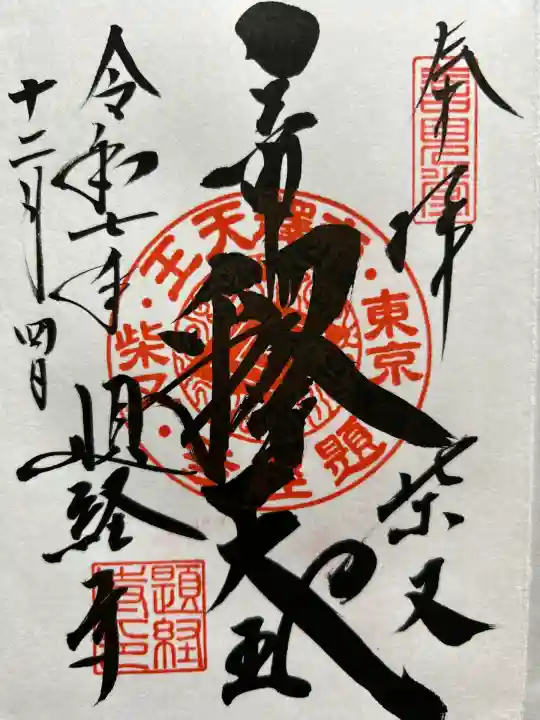 奉拝
柴又
帝釈天王
令和七年
十二月四日
題経寺
帝釈天王
東京
柴又
題経寺
喜見堂
題経寺印